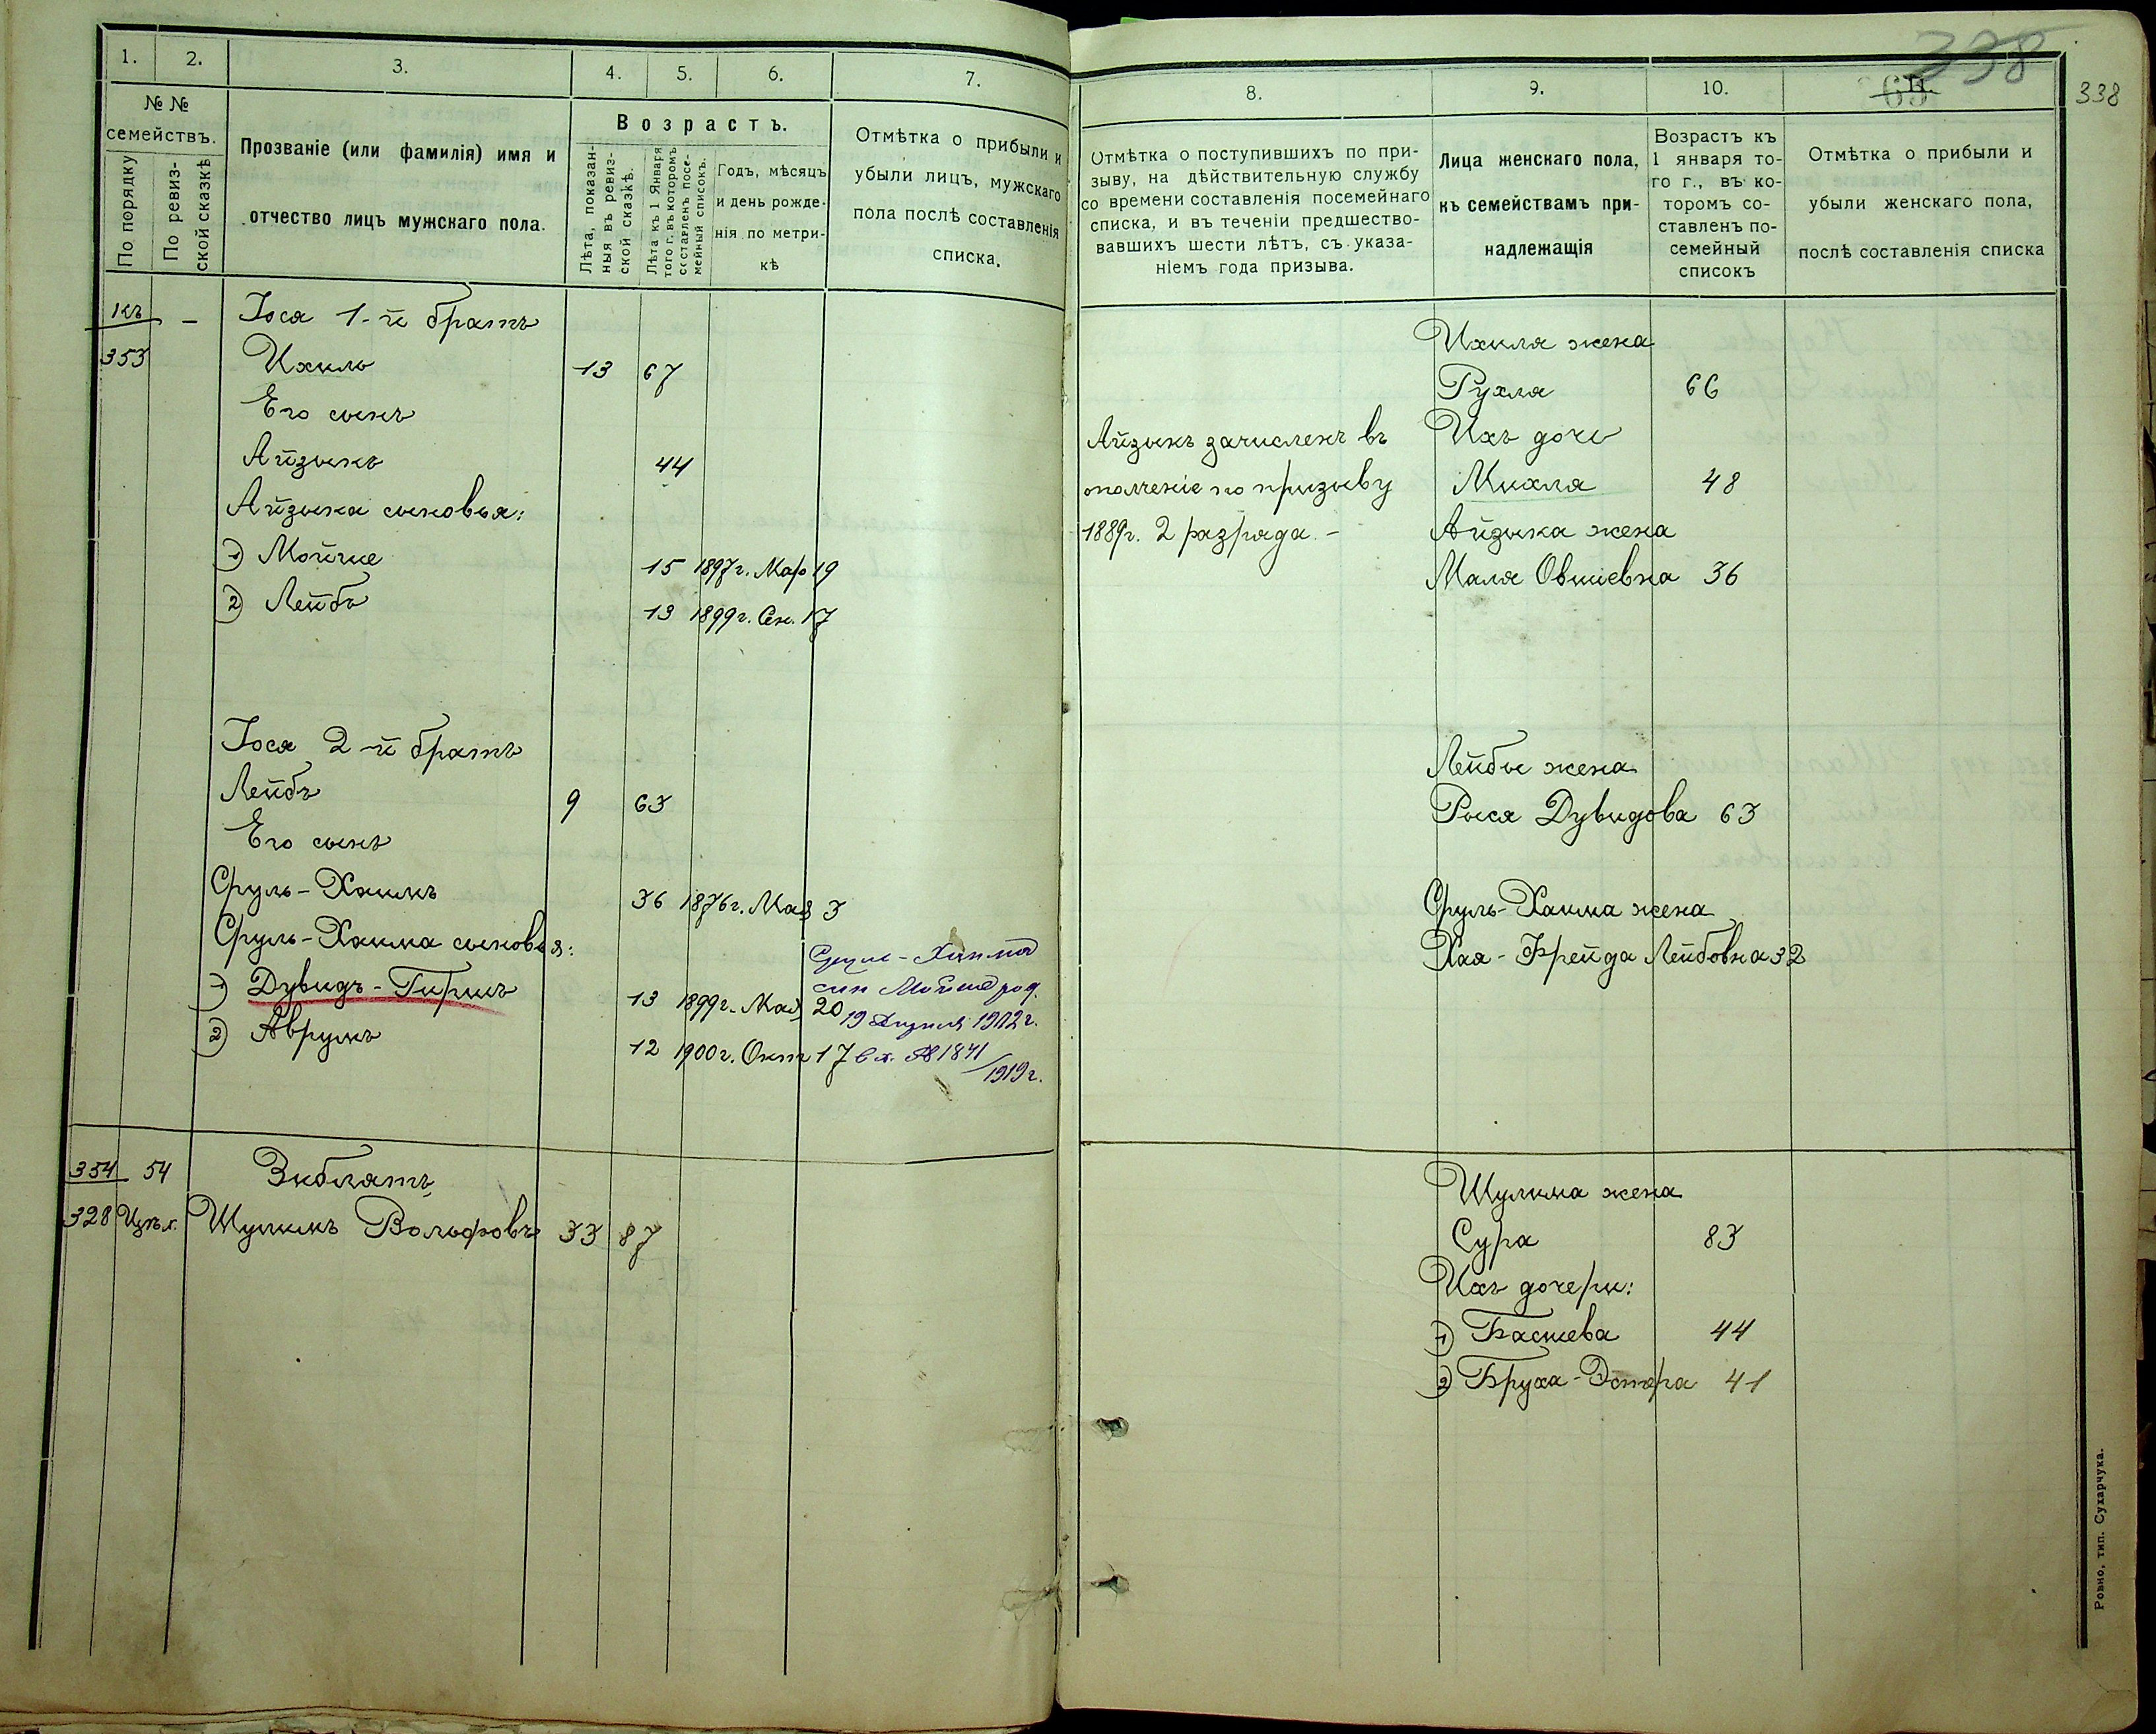 1. 2. 3. 4. 5. 6. 7.
№ №
семействъ.
По порядку
По ревиз-
ской сказкѣ
Прозваніе (или фамилія) имя и
отчество лицъ мужскаго пола.
Возрастъ.
Лѣта, показан-
ныя въ ревиз-
ской сказкѣ.
Лѣта къ 1 Января
того г. въ которомъ
составленъ посе-
мейный списокъ.
Годъ, мѣсяцъ
и день рожде-
нія по метри-
кѣ
Отмѣтка о прибыли и
убыли лицъ, мужскаго
пола послѣ составленія
списка.
къ — Іося 1-й братъ
353 Ихиль 13 67
Его сынъ
Айзыкъ 44
Айзыка сыновья:
1) Мойше 15 1897г. Мар 19
2) Лейбъ 13 1899г. Сен. 17
Іося 2-й братъ
Лейбъ 9 63
Его сынъ
Сруль-Хаимъ 36 1876г. Мая 3
Сруль-Хаима сыновья:
1) Дувидъ-Гиршъ 13 1899г. Мая 20
2) Аврумъ 12 1900г. Окт 17
Сруль-Хаима
син Мойше род.
19 1912г.
вх. № 1841
/1919г.
354 54 Зиблатъ
328 Шулимъ Вольфовъ 33 87
338
338
8. 9. 10. 11.
Отмѣтка о поступившихъ по при-
зыву, на дѣйствительную службу
со времени составленія посемейнаго
списка, и въ теченіи предшество-
вавшихъ шести лѣтъ, съ указа-
ніемъ года призыва.
Лица женскаго пола,
къ семействамъ при-
надлежащія
Возрастъ къ
1 января то-
го г., въ ко-
торомъ со-
ставленъ по-
семейный
списокъ
Отмѣтка о прибыли и
убыли женскаго пола,
послѣ составленія списка
Айзыкъ зачисленъ въ
ополченіе по призыву
1889г. 2 разряда. —
Ихиля жена
Рухля 66
Ихъ дочь
Михля 48
Айзыка жена
Маля Овшіевна 36
Лейбы жена
Рыся Дувидова 63
Сруль-Хаима жена
Хая-Фрейда Лейбовна 32
Шулима жена
Сура 83
Ихъ дочери:
1) Басшева 44
2) Бруха-Эстера 41
Ровно, тип. Сухарчука.